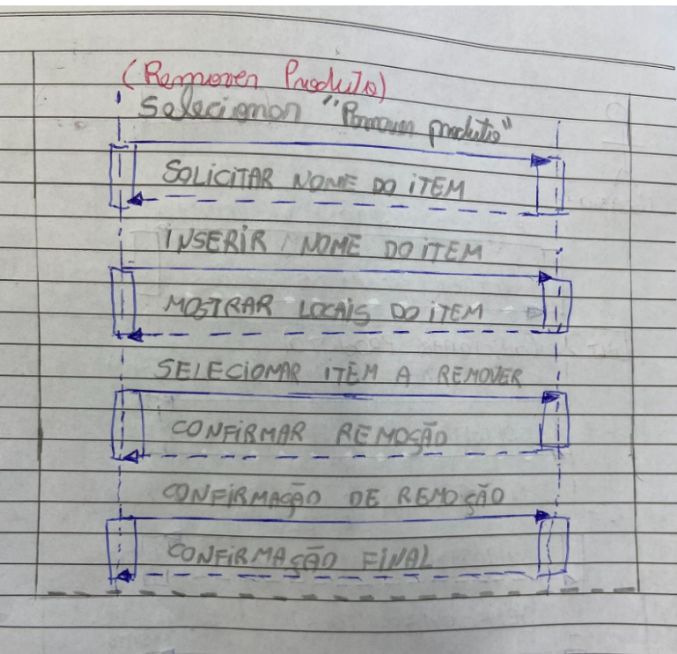 (Remover Produto)
Selecionar "Remover produto"
SOLICITAR NOME DO ITEM
INSERIR NOME DO ITEM
MOSTRAR LOCAIS DO ITEM
SELECIONAR ITEM A REMOVER
CONFIRMAR REMOÇÃO
CONFIRMAÇÃO DE REMOÇÃO
CONFIRMAÇÃO FINAL